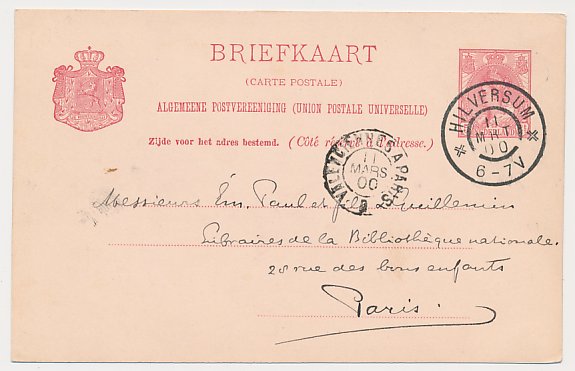 BRIEFKAART
(CARTE POSTALE)
ALGEMEENE POSTVEREENIGING (UNION POSTALE UNIVERSELLE)
Zijde voor het adres bestemd. (Côté réservé à l'adresse.)
HILVERSUM
11
MRT
00
6-7V
VALENCIENNES A PARIS
11
MARS
00
Messieurs Em. Paul et fils Guillemin
Libraires de la Bibliothèque nationale.
28 rue des bons enfants
Paris.